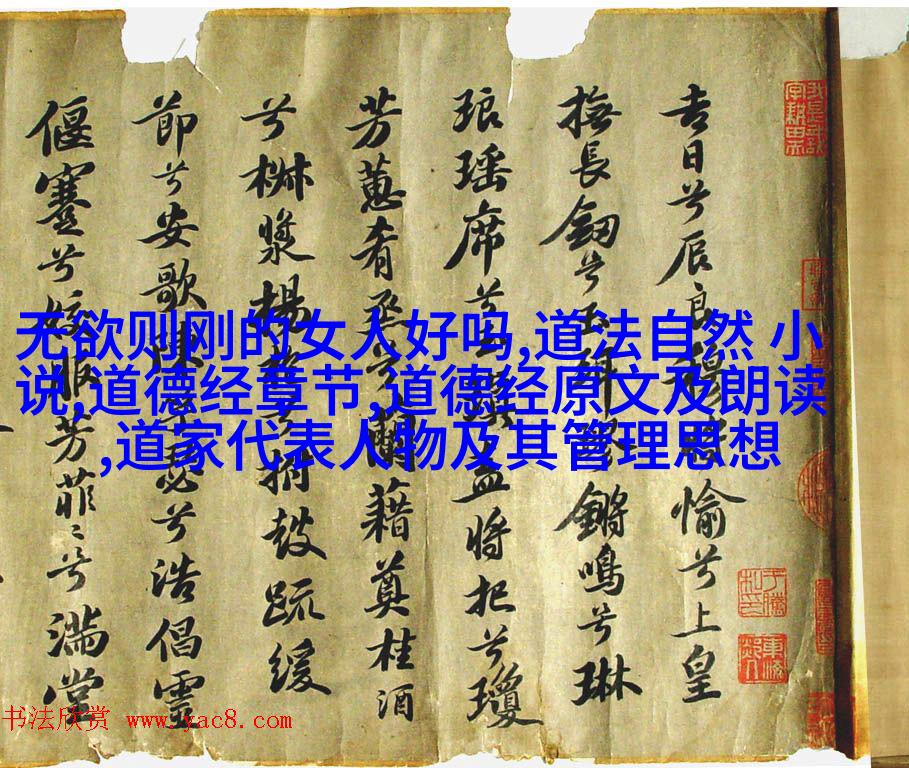 无欲则刚的女人好吗,道法自然 小
说,道德经章节,道德经原文及朗读
,道家代表人物及其管理思想
吉日兮辰良穆將愉兮上皇
撫長釼兮玉珥璆鏘鳴兮琳
琅瑶席兮玉瑱盍將把兮瓊
芳蕙肴烝兮蘭藉奠桂酒
兮椒漿揚枹兮拊鼓疏緩
節兮安歌陳竽瑟兮浩倡靈
偃蹇兮姣服芳菲〻兮滿堂
书法欣赏 www.yac8.com